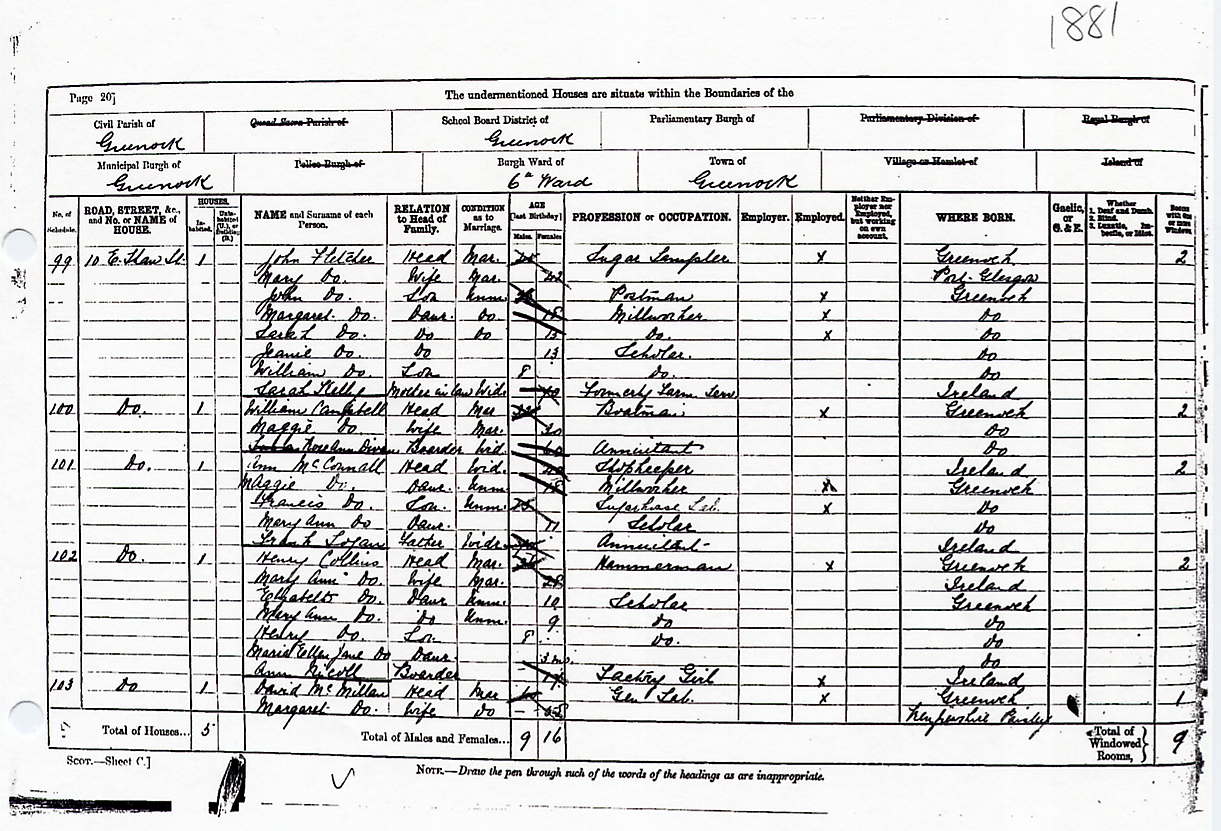 1881
Page 20]
The undermentioned Houses are situate within the Boundaries of the
Civil Parish of Greenock
Quoad Sacra Parish of
School Board District of Greenock
Parliamentary Burgh of
Parliamentary Division of
Royal Burgh of
Municipal Burgh of Greenock
Police Burgh of
Burgh Ward of 6th Ward
Town of Greenock
Village or Hamlet of
Island of
No. of Schedule. ROAD, STREET, &c., and No. or NAME of HOUSE. HOUSES. Inhabited. Uninhabited (U.), or Building (B.) NAME and Surname of each Person. RELATION to Head of Family. CONDITION as to Marriage. AGE [last Birthday] Males. Females. PROFESSION or OCCUPATION. Employer. Employed. Neither Employer nor Employed, but working on own account. WHERE BORN. Gaelic, or G. & E. Whether 1. Deaf and Dumb. 2. Blind. 3. Lunatic, Imbecile, or Idiot. Rooms with one or more Windows
99 10 E. Shaw St. 1 John Fletcher Head Mar. Sugar Sampler x Greenock 2
Mary Do. Wife Mar. 42 Port-Glasgow
John Do. Son Unm Postman x Greenock
Margaret Do. Daur. Do 18 Millworker x Do
Sarah Do. Do Do 15 Do. x Do
Jeanie Do. Do 13 Scholar. Do
William Do. Son 8 Do. Do
Sarah Kelly Mother in law Wid. 70 Formerly Farm Serv Ireland
100 Do. 1 William Campbell Head Mar Boatman x Greenock 2
Maggie Do. Wife Mar. 30 Do
Rose Ann Boarder Wid. 60 Annuitant Do
101 Do. 1 Ann McConnall Head Wid. Shopkeeper Ireland 2
Maggie Do. Daur. Unm. 18 Millworker x Greenock
Francis Do. Son Unm. Sugarhouse Lab. x Do
Mary Ann Do Daur. 11 Scholar Do
Frank Logan Father Widr Annuitant Ireland
102 Do. 1 Henry Collins Head Mar. Hammerman x Greenock 2
Mary Ann Do. Wife Mar. 28 Ireland
Elizabeth Do. Daur Unm. 10 Scholar Greenock
Mary Ann Do. Do Unm. 9 Do Do
Henry Do. Son 8 Do. Do
Maria Ellen Jane Do Daur 3 m. Do
Ann Boarder Factry Girl x Ireland
103 Do 1 David McMillan Head Mar Gen Lab. x Greenock 1
Margaret Do. Wife Do Renfrewshire Paisley
Total of Houses... 5 Total of Males and Females... 9 16 Total of Windowed Rooms, 9
SCOT.—Sheet C.]
NOTE.—Draw the pen through such of the words of the headings as are inappropriate.